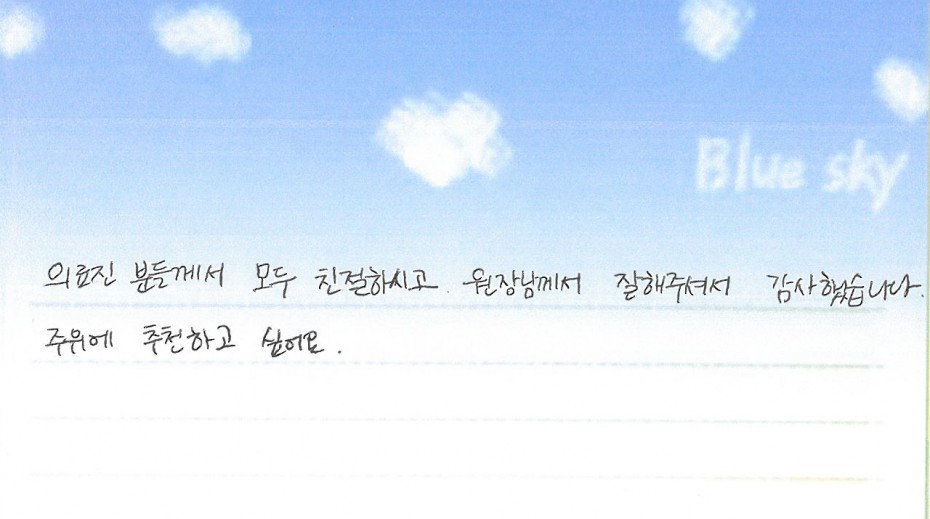 Blue sky
의료진 분들께서 모두 친절하시고. 원장님께서 잘해주셔서 감사했습니다.
주위에 추천하고 싶어요.